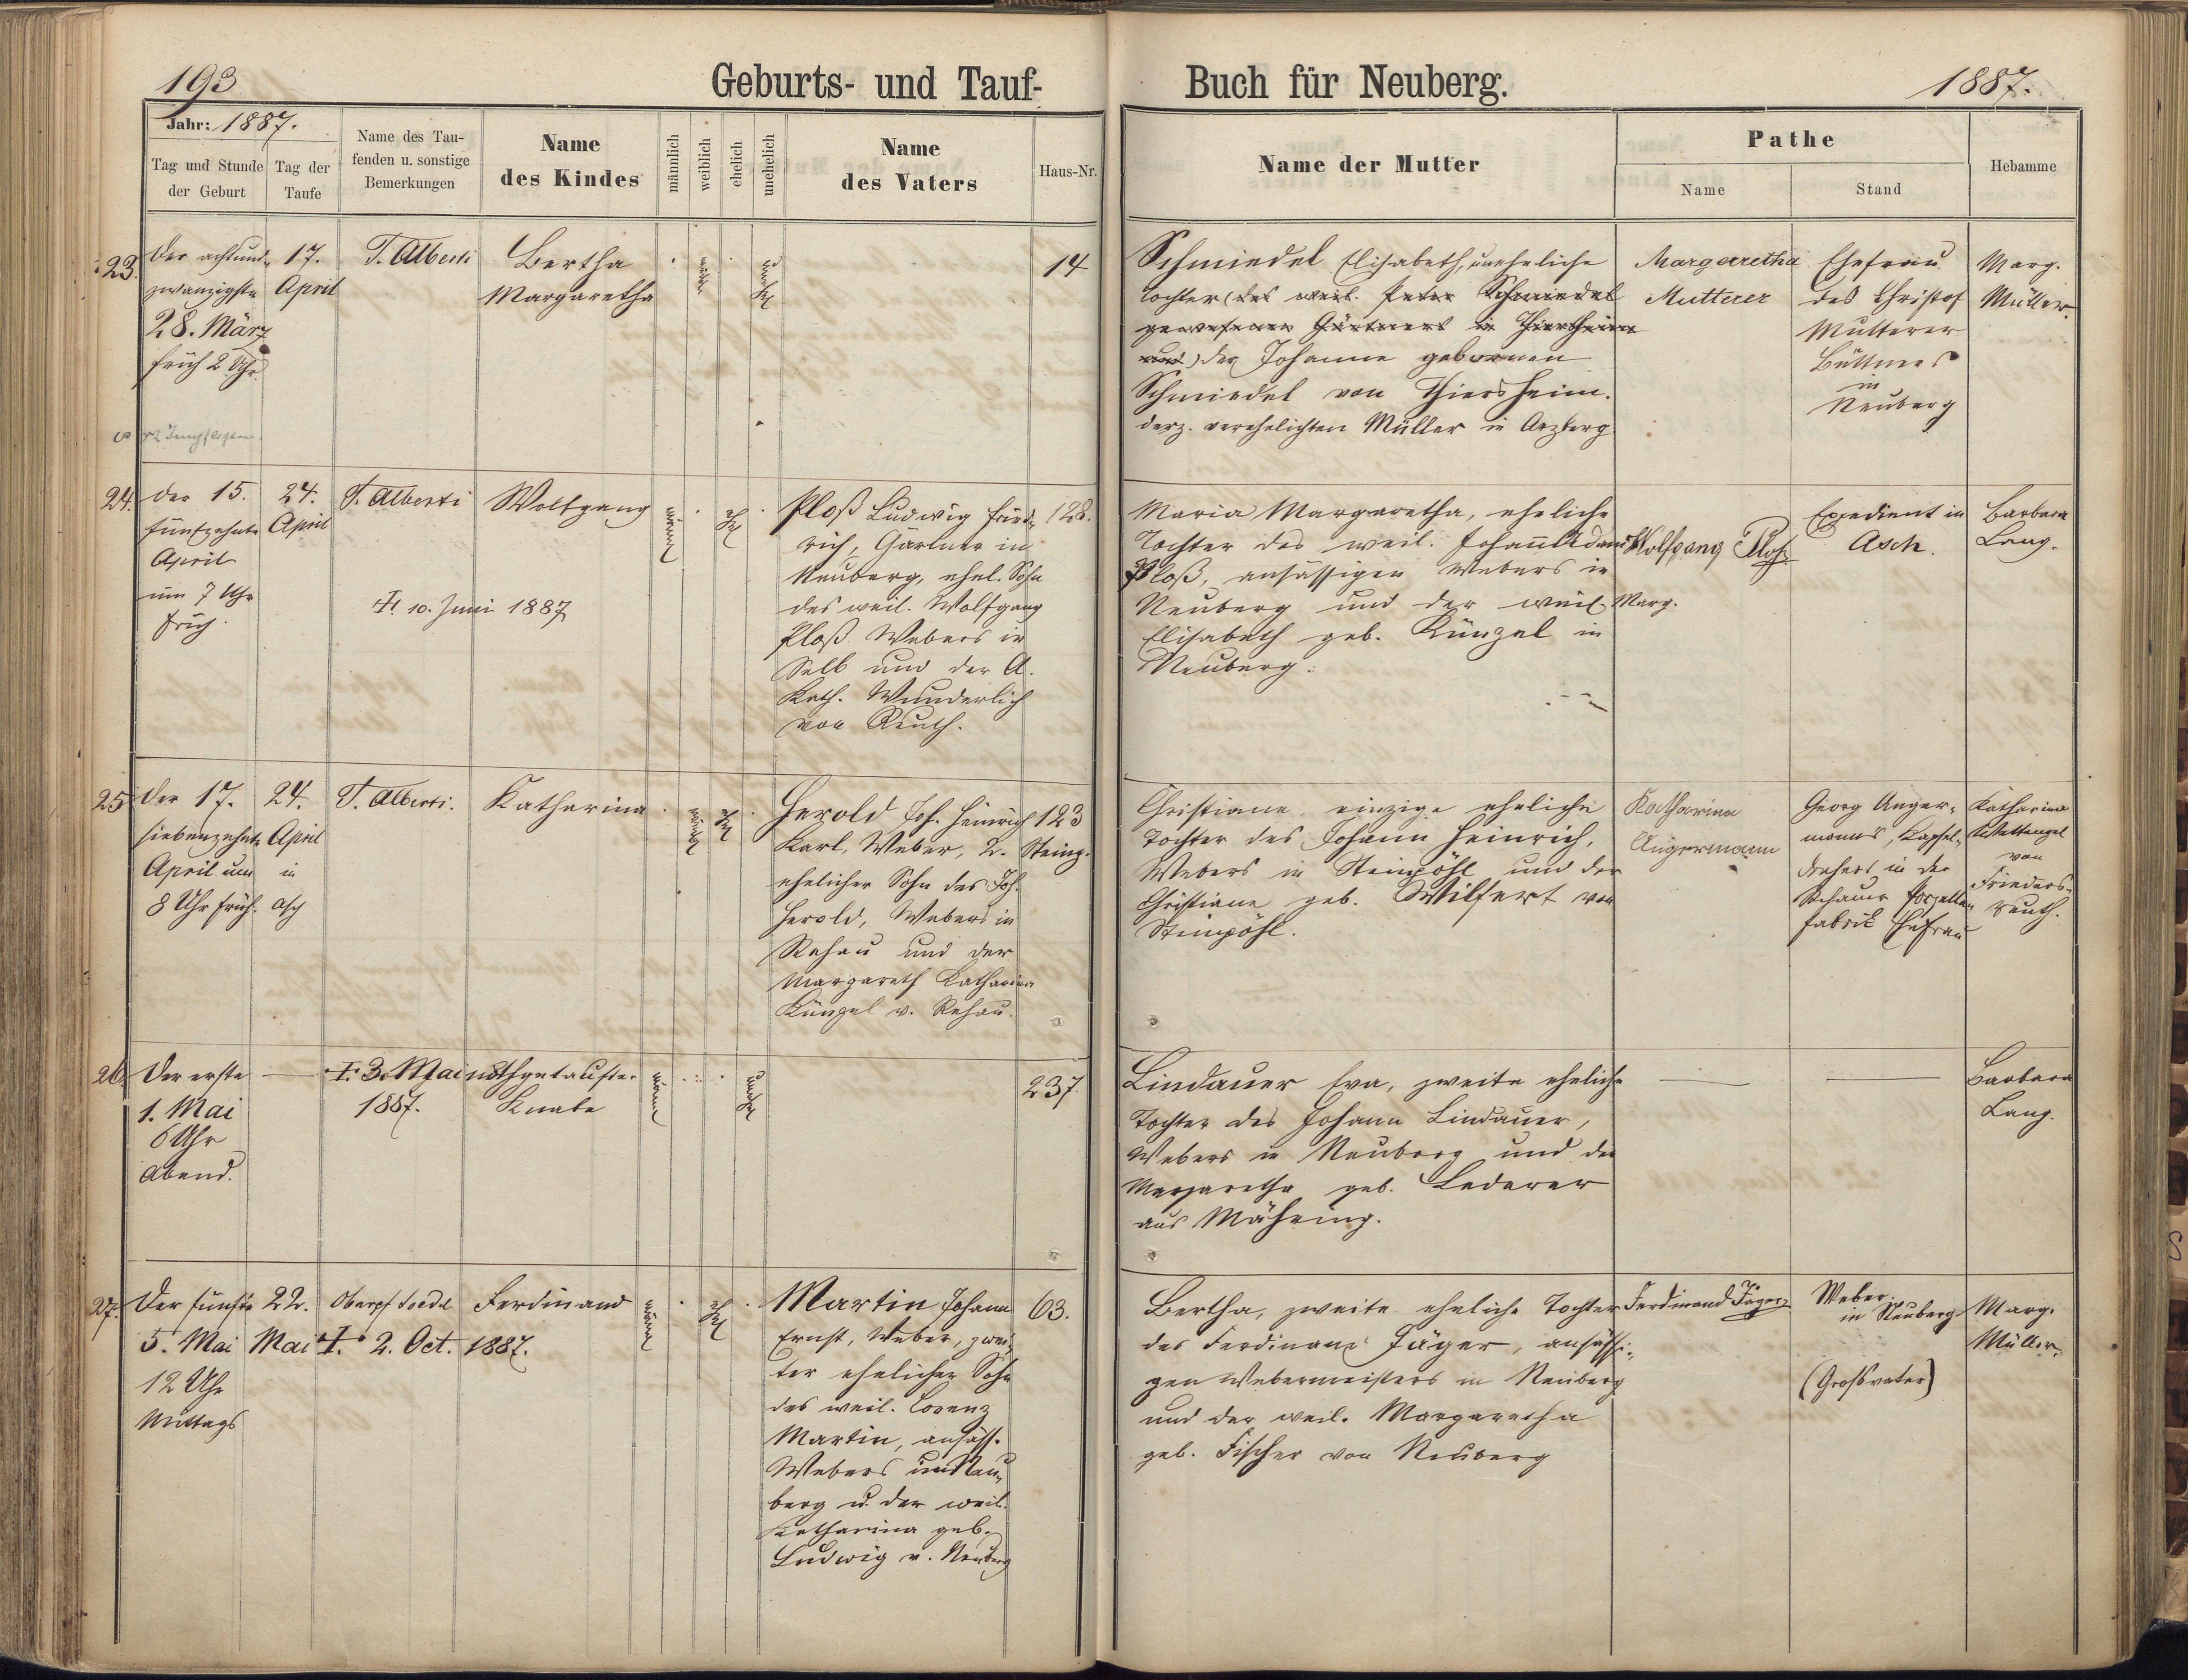 193
Geburts- und Tauf-
Buch für Neuberg.
1887.
Jahr: 1887.
Tag und Stunde
der Geburt
Tag der
Taufe
Name des Tau-
fenden u. sonstige
Bemerkungen
Name
des Kindes
männlich
weiblich
ehelich
unehelich
Name
des Vaters
Haus-Nr.
Name der Mutter
Pathe
Name
Stand
Hebamme
23.
Der achtund-
zwanzigste
28. März
früh 2 Uhr
17.
April
T. Alberti
Bertha
Margaretha
14
Schmiedel Elisabeth, uneheliche
Tochter (des weil. Peter Schmiedel
gewesenen Gärtners in Thiersheim
und) der Johanne gebornen
Schmiedel von Thiersheim.
derz. verehelichten Müller in Arzberg
Margarretha
Mutterer
Ehefrau
des Christof
Mutterer
Büttners
in
Neuberg
Marg.
Müller.
24.
der 15.
fünfzehnte
April
um 7 Uhr
früh.
24.
April
T. Alberti
† 10. Juni 1887
Wolfgang
männl
ehel
Ploß Ludwig Fried-
rich, Gärtner in
Neuberg, ehel. Sohn
des weil. Wolfgang
Ploß Webers in
Selb und der A.
Kath. Wunderlich
von Reuth.
128.
Maria Margaretha, eheliche
Tochter des weil. Johann Adam
Ploß, ansässigen Webers in
Neuberg und der weil. Marg.
Elisabeth geb. Künzel in
Neuberg.
Wolfgang Ploß
Expedient in
Asch.
Barbara
Lang.
25
der 17.
siebenzehnte
April um
8 Uhr früh.
24.
April
in
Asch
T. Alberti.
Katharina
ehel
Herold Joh. Heinrich
Karl, Weber, 2.
ehelicher Sohn des Joh.
Herold, Webers in
Rehau und der
Margareth Katharina
Künzel v. Rehau.
123
Steinp.
Christiane einzige eheliche
Tochter des Johann Heinrich,
Webers in Steinpöhl und der
Christiane geb. Wilfert von
Steinpöhl.
Katharina
Angermann
Georg Anger-
manns, Kapsel-
drehers in der
Rehauer Porzellan
fabrik Ehefrau
Katharina
Wettengel
von
Frieders-
reuth.
26.
Der erste
1. Mai
6 Uhr
Abend.
†. 3. Mai
1887.
nothgetaufter
Knabe
männl
unehel
237.
Lindauer Eva, zweite eheliche
Tochter des Johann Lindauer,
Webers in Neuberg und der
Margaretha geb. Lederer
aus Mähring.
Barbara
Lang.
27.
Der fünfte
5. Mai
12 Uhr
Mittags
22.
Mai
†. 2. Oct. 1887.
Ferdinand
männl
ehel
Martin Johann
Ernst, Weber, zwei-
ter ehelicher Sohn
des weil. Lorenz
Martin, ansäss.
Webers in Neu-
berg u. der weil.
Katharina geb.
Ludwig v. Neuberg
63.
Bertha, zweite eheliche Tochter
des Ferdinand Jäger, ansässi-
gen Webermeisters in Neuberg
und der weil. Margaretha
geb. Fischer von Neuberg
Ferdinand Jäger
Weber
in Neuberg
(Großvater)
Marg.
Müller.